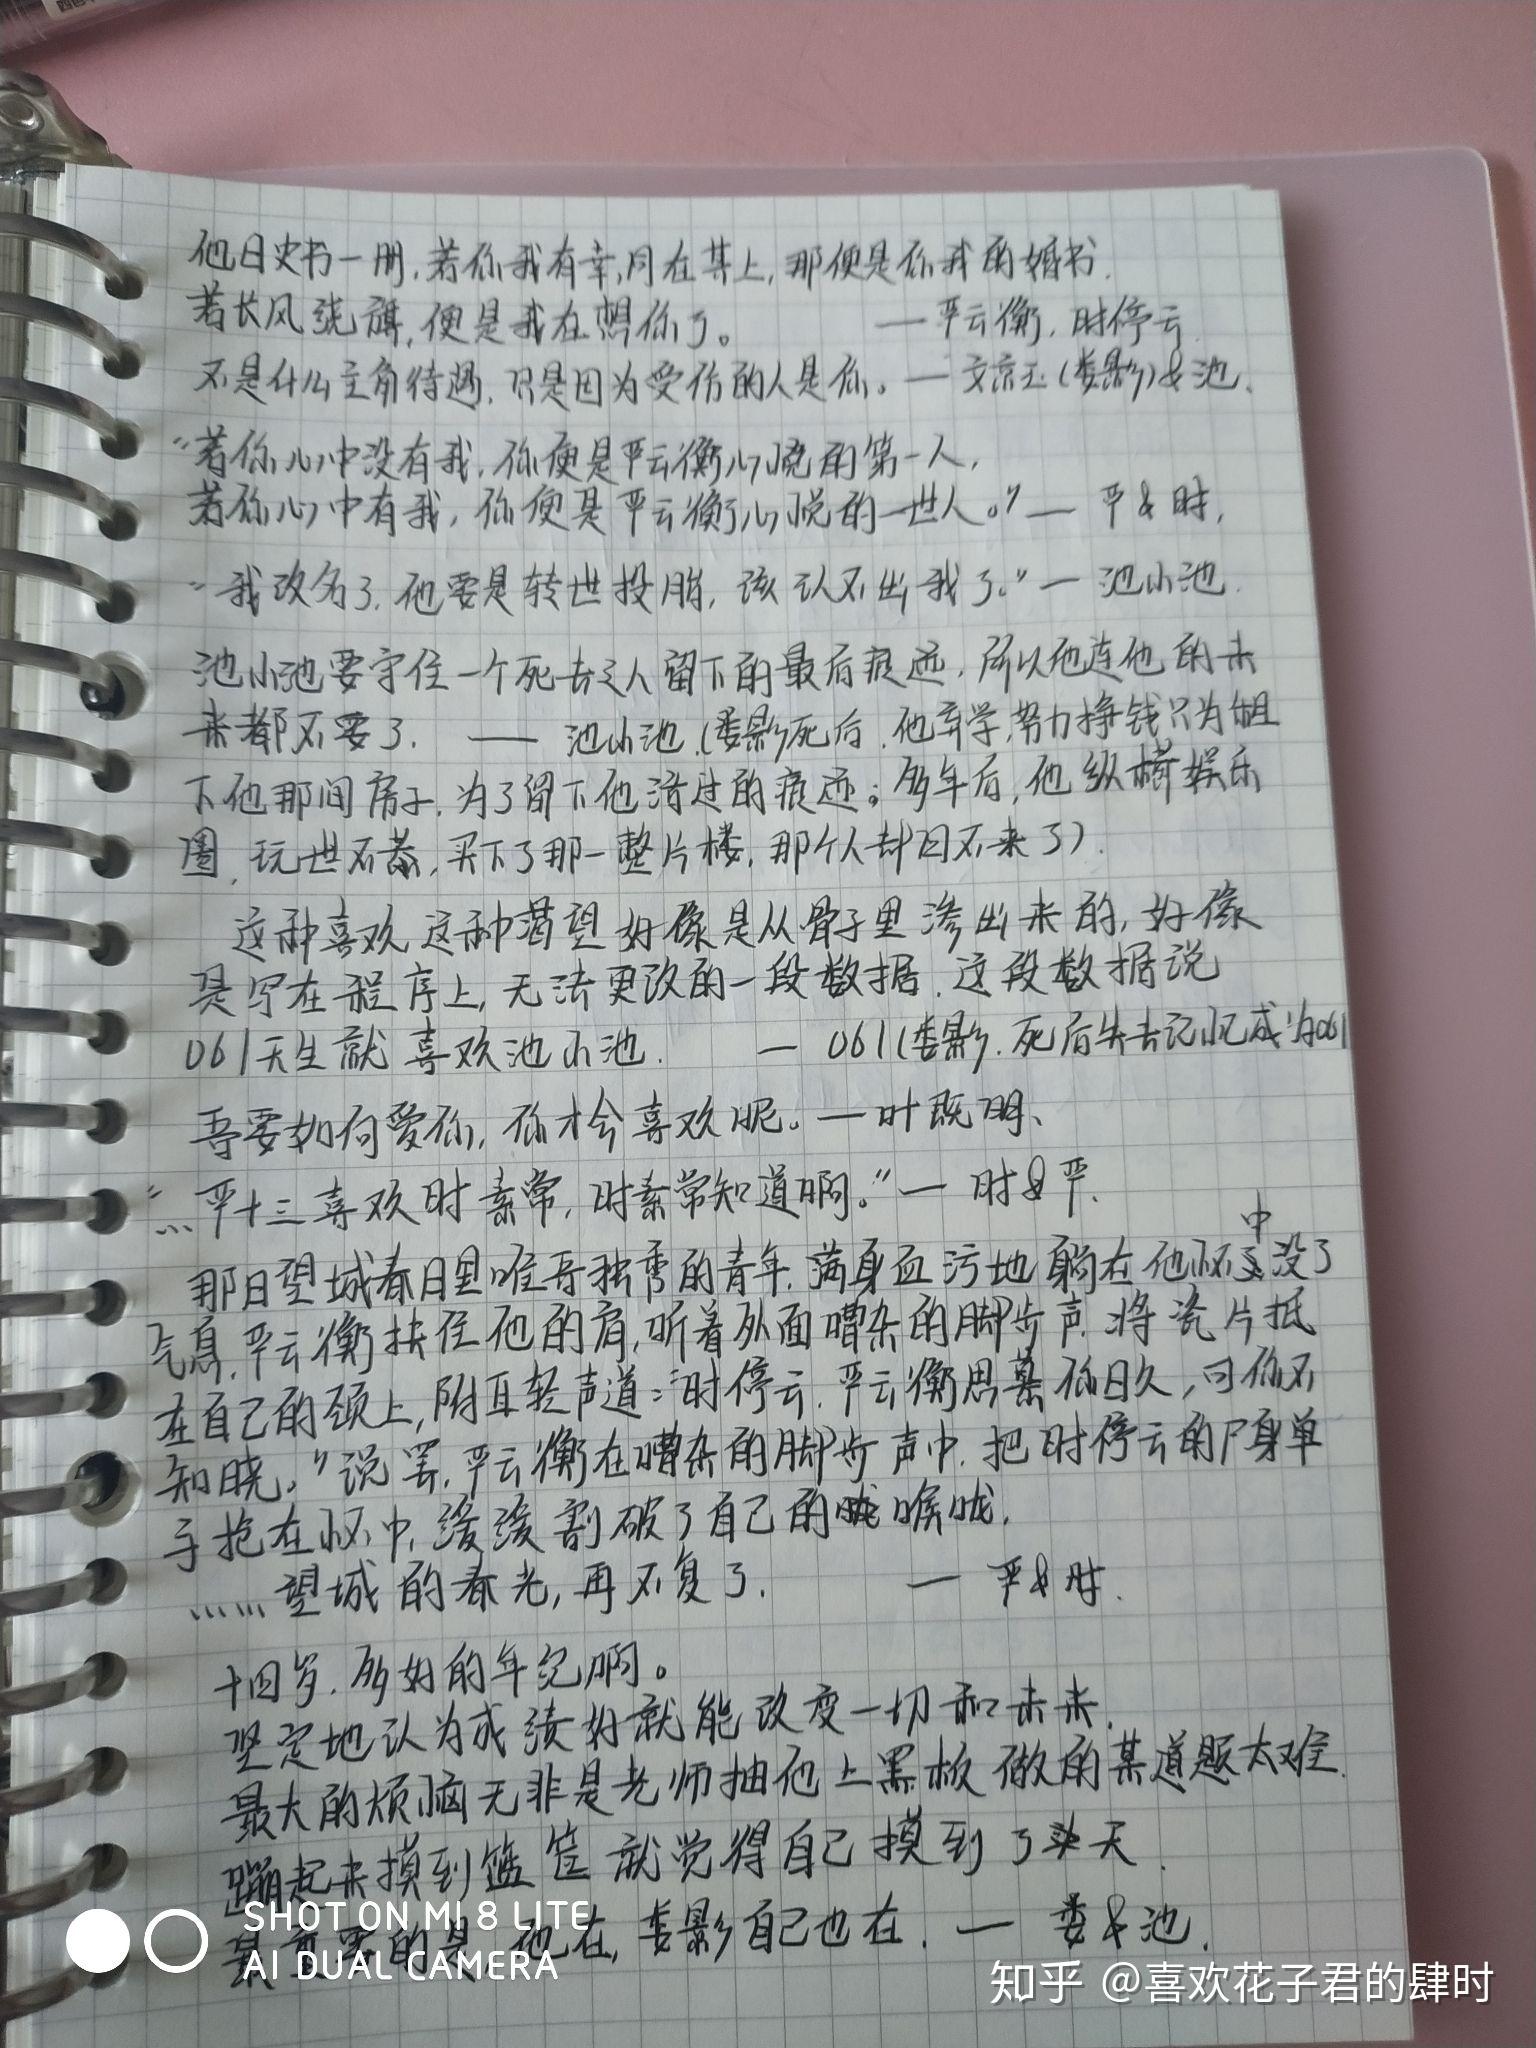 他日史书一册,若你我有幸,同在其上,那便是你我的婚书.
若长风绕旗,便是我在想你了。 — 严云衡.时停云.
不是什么主角待遇.只是因为受伤的人是你。— 文京玉(娄影)&池.
"若你心中没有我,你便是严云衡心悦的第一人,
若你心中有我,你便是严云衡心悦的一世人。" — 严&时.
"我改名了.他要是转世投胎,该认不出我了。" — 池小池.
池小池要守住一个死去之人留下的最后痕迹.所以他连他的未
来都不要了. — 池小池.(娄影死后.他弃学,努力挣钱只为租
下他那间房子.为了留下他活过的痕迹;多年后,他纵横娱乐
圈,玩世不恭,买下了那一整片楼,那个人却回不来了).
这种喜欢这种渴望好像是从骨子里渗出来的,好像
是写在程序上,无法更改的一段数据.这段数据说
061天生就喜欢池小池. — 061(娄影.死后失去记忆成为061
吾要如何爱你,你才会喜欢呢。— 叶既明、
"...严十三喜欢时素常,时素常知道啊。" — 时&严.
中
那日望城春日里唯吾独秀的青年.满身血污地躺在他怀没了
气息.严云衡扶住他的肩,听着外面嘈杂的脚步声.将瓷片抵
在自己的颈上,附耳轻声道:"时停云.严云衡思慕你日久,可你不
知晓。"说罢.严云衡在嘈杂的脚步声中.把时停云的尸身单
手抱在怀中,缓缓割破了自己的喉咙.
......望城的春光,再不复了. — 严&时.
十四岁.多好的年纪啊。
坚定地认为成绩好就能改变一切和未来.
最大的烦恼无非是老师抽他上黑板做的某道题太难.
蹦起来摸到篮筐就觉得自己摸到了天.
最重要的是,他在,娄影自己也在. — 娄&池.
SHOT ON MI 8 LITE
AI DUAL CAMERA
知乎 @喜欢花子君的肆时